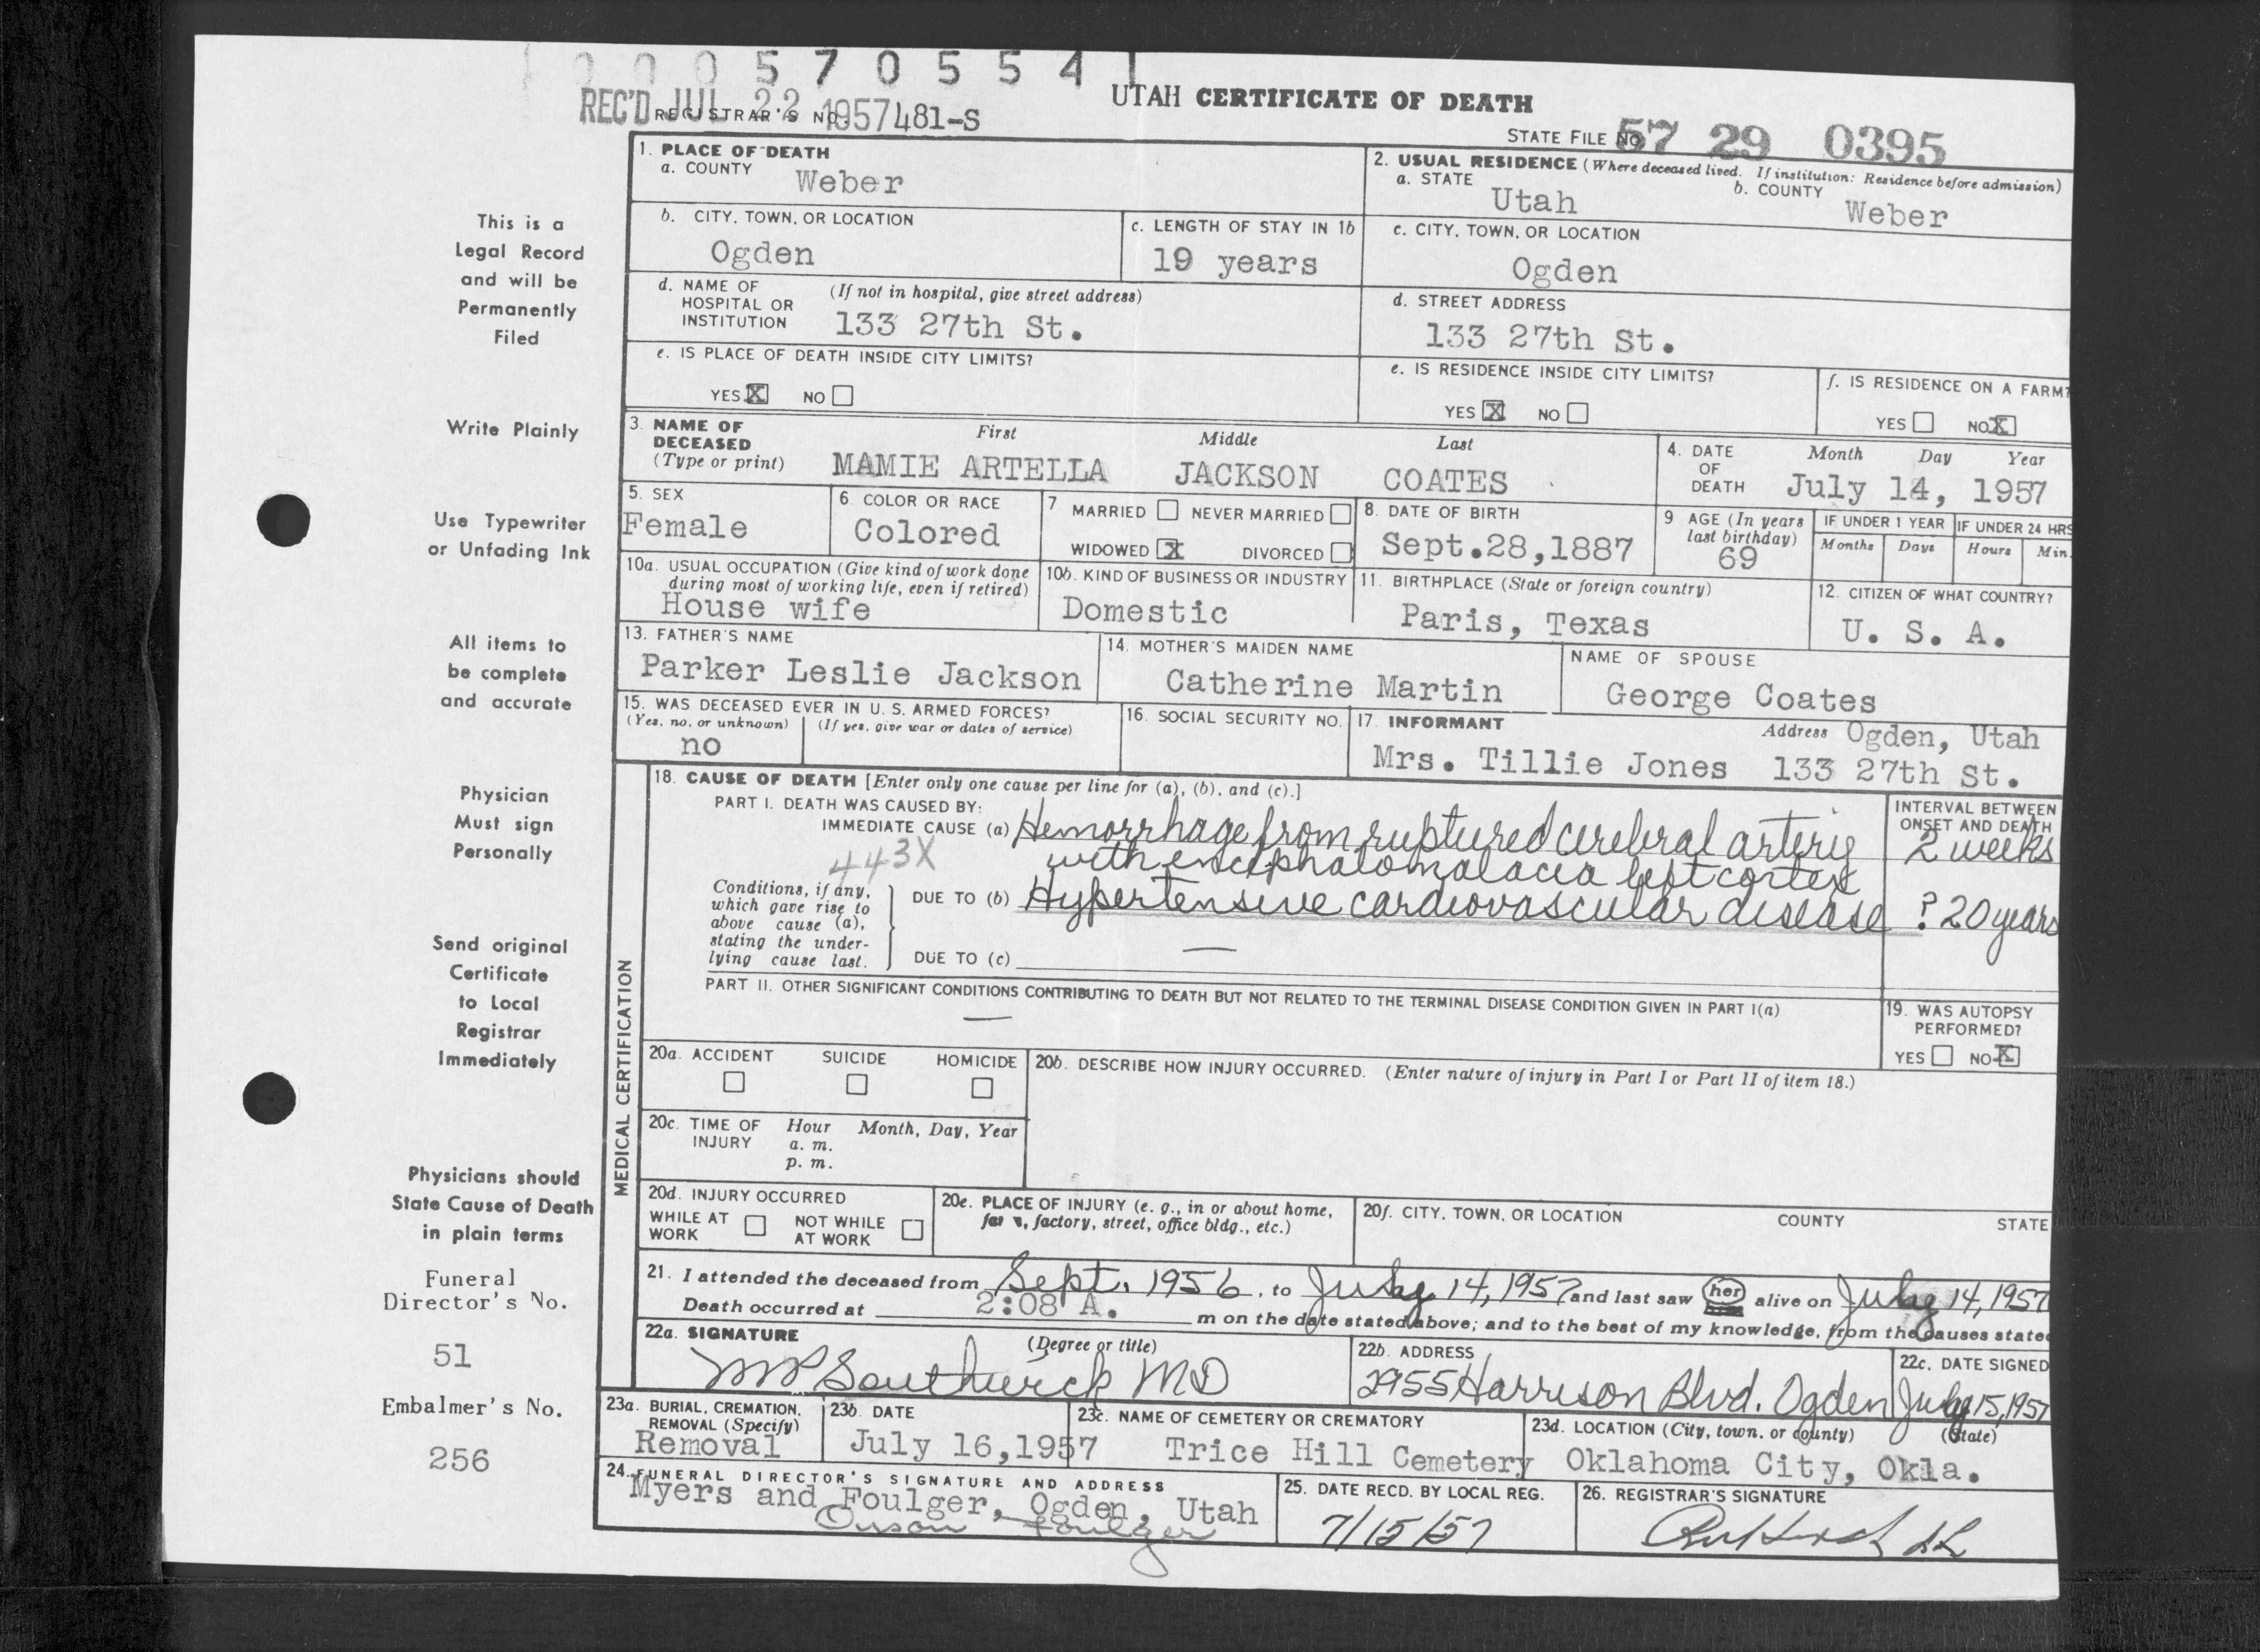 0 0 0 5 7 0 5 5 4 1
UTAH CERTIFICATE OF DEATH
REC'D JUL 22 1957
REGISTRAR'S NO. 481-S
STATE FILE NO. 57 29 0395
This is a
Legal Record
and will be
Permanently
Filed
Write Plainly
Use Typewriter
or Unfading Ink
All items to
be complete
and accurate
Physician
Must sign
Personally
Send original
Certificate
to Local
Registrar
Immediately
Physicians should
State Cause of Death
in plain terms
Funeral
Director's No.
51
Embalmer's No.
256
1. PLACE OF DEATH
a. COUNTY Weber
2. USUAL RESIDENCE (Where deceased lived. If institution: Residence before admission)
a. STATE Utah b. COUNTY Weber
b. CITY, TOWN, OR LOCATION
Ogden
c. LENGTH OF STAY IN 1b
19 years
c. CITY, TOWN, OR LOCATION
Ogden
d. NAME OF HOSPITAL OR INSTITUTION (If not in hospital, give street address)
133 27th St.
d. STREET ADDRESS
133 27th St.
e. IS PLACE OF DEATH INSIDE CITY LIMITS?
YES X NO
e. IS RESIDENCE INSIDE CITY LIMITS?
YES X NO
f. IS RESIDENCE ON A FARM?
YES NO X
3. NAME OF DECEASED (Type or print) First Middle Last
MAMIE ARTELLA JACKSON COATES
4. DATE OF DEATH Month Day Year
July 14, 1957
5. SEX
Female
6. COLOR OR RACE
Colored
7 MARRIED NEVER MARRIED
WIDOWED X DIVORCED
8. DATE OF BIRTH
Sept.28,1887
9 AGE (In years last birthday)
69
IF UNDER 1 YEAR IF UNDER 24 HRS
Months Days Hours Min.
10a. USUAL OCCUPATION (Give kind of work done during most of working life, even if retired)
House wife
10b. KIND OF BUSINESS OR INDUSTRY
Domestic
11. BIRTHPLACE (State or foreign country)
Paris, Texas
12. CITIZEN OF WHAT COUNTRY?
U. S. A.
13. FATHER'S NAME
Parker Leslie Jackson
14. MOTHER'S MAIDEN NAME
Catherine Martin
NAME OF SPOUSE
George Coates
15. WAS DECEASED EVER IN U. S. ARMED FORCES?
(Yes, no, or unknown) (If yes, give war or dates of service)
no
16. SOCIAL SECURITY NO.
17. INFORMANT Address Ogden, Utah
Mrs. Tillie Jones 133 27th St.
MEDICAL CERTIFICATION
18. CAUSE OF DEATH [Enter only one cause per line for (a), (b), and (c).]
INTERVAL BETWEEN ONSET AND DEATH
PART I. DEATH WAS CAUSED BY:
IMMEDIATE CAUSE (a) Hemorrhage from ruptured cerebral artery 2 weeks
443X with encephalomalacia left cortex
Conditions, if any, which gave rise to above cause (a), stating the underlying cause last.
DUE TO (b) Hypertensive cardiovascular disease ? 20 years
DUE TO (c) —
PART II. OTHER SIGNIFICANT CONDITIONS CONTRIBUTING TO DEATH BUT NOT RELATED TO THE TERMINAL DISEASE CONDITION GIVEN IN PART I(a)
—
19. WAS AUTOPSY PERFORMED?
YES NO X
20a. ACCIDENT SUICIDE HOMICIDE
20b. DESCRIBE HOW INJURY OCCURRED. (Enter nature of injury in Part I or Part II of item 18.)
20c. TIME OF INJURY Hour Month, Day, Year
a. m.
p. m.
20d. INJURY OCCURRED
WHILE AT WORK NOT WHILE AT WORK
20e. PLACE OF INJURY (e. g., in or about home, factory, street, office bldg., etc.)
20f. CITY, TOWN, OR LOCATION COUNTY STATE
21. I attended the deceased from Sept. 1956, to July 14, 1957 and last saw her alive on July 14, 1957
Death occurred at 2:08 A. m on the date stated above; and to the best of my knowledge, from the causes stated
22a. SIGNATURE (Degree or title)
Southwick MD
22b. ADDRESS
2955 Harrison Blvd. Ogden
22c. DATE SIGNED
July 15, 1957
23a. BURIAL, CREMATION, REMOVAL (Specify)
Removal
23b. DATE
July 16,1957
23c. NAME OF CEMETERY OR CREMATORY
Trice Hill Cemetery
23d. LOCATION (City, town, or county) (State)
Oklahoma City, Okla.
24. FUNERAL DIRECTOR'S SIGNATURE AND ADDRESS
Myers and Foulger, Ogden, Utah
Orson Foulger
25. DATE RECD. BY LOCAL REG.
7/15/57
26. REGISTRAR'S SIGNATURE